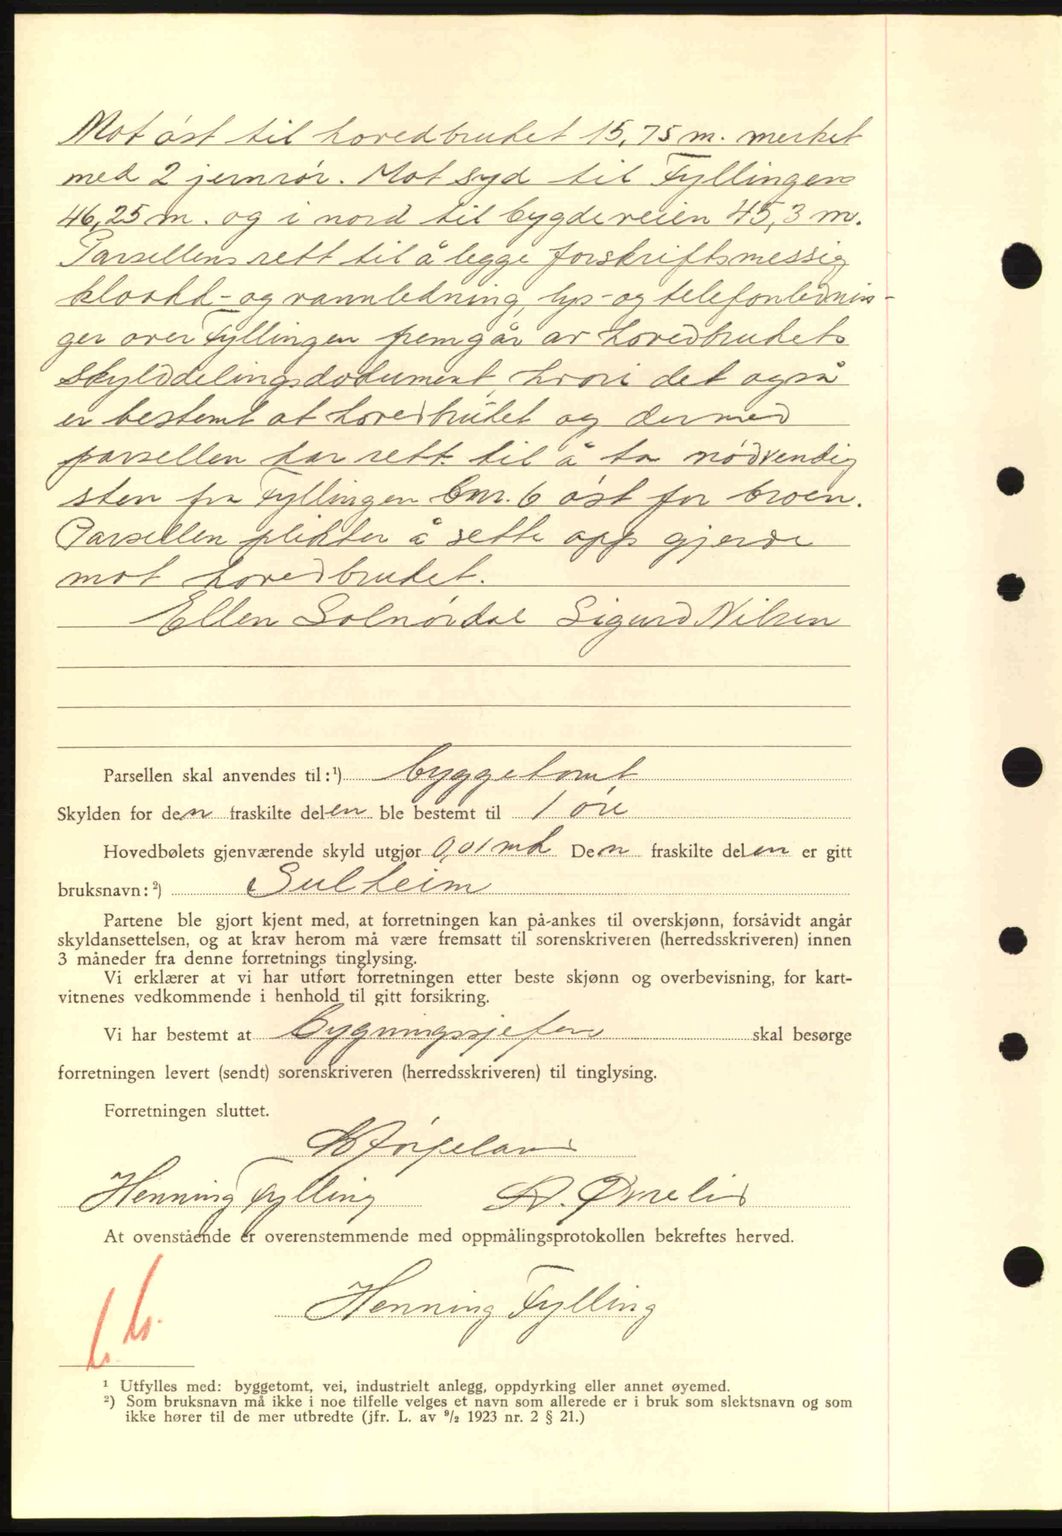 Mot øst til hovedbruket 15,75 m. merket
med 2 jernrør. Mot syd til Fyllingen
46,25 m. og i nord til bygdeveien 45,3 m.
Parsellens rett til å legge forskriftsmessig
kloakk- og vannledning, lys- og telefonlednin-
ger over Fyllingen fremgår av hovedbrukets
skylddelingsdokument, hvori det også
er bestemt at hovedbruket og dermed
parsellen har rett til å ta nødvendig
sten fra Fyllingen bnr. 6 øst for broen.
Parsellen plikter å sette opp gjerde
mot hovedbruket.
Ellen Solnørdal Sigurd Nilsen
Parsellen skal anvendes til:¹) byggetomt
Skylden for den fraskilte delen ble bestemt til 1 øre
Hovedbølets gjenværende skyld utgjør 0,01 mk Den fraskilte delen er gitt
bruksnavn:²) Sulheim
Partene ble gjort kjent med, at forretningen kan på-ankes til overskjønn, forsåvidt angår
skyldansettelsen, og at krav herom må være fremsatt til sorenskriveren (herredsskriveren) innen
3 måneder fra denne forretnings tinglysing.
Vi erklærer at vi har utført forretningen etter beste skjønn og overbevisning, for kart-
vitnenes vedkommende i henhold til gitt forsikring.
Vi har bestemt at Bygningssjefen skal besørge
forretningen levert (sendt) sorenskriveren (herredsskriveren) til tinglysing.
Forretningen sluttet.
Henning Fylling
At ovenstående er overenstemmende med oppmålingsprotokollen bekreftes herved.
Henning Fylling
¹ Utfylles med: byggetomt, vei, industrielt anlegg, oppdyrking eller annet øyemed.
²) Som bruksnavn må ikke i noe tilfelle velges et navn som allerede er i bruk som slektsnavn og som
ikke hører til de mer utbredte (jfr. L. av ⁹/₂ 1923 nr. 2 § 21.)